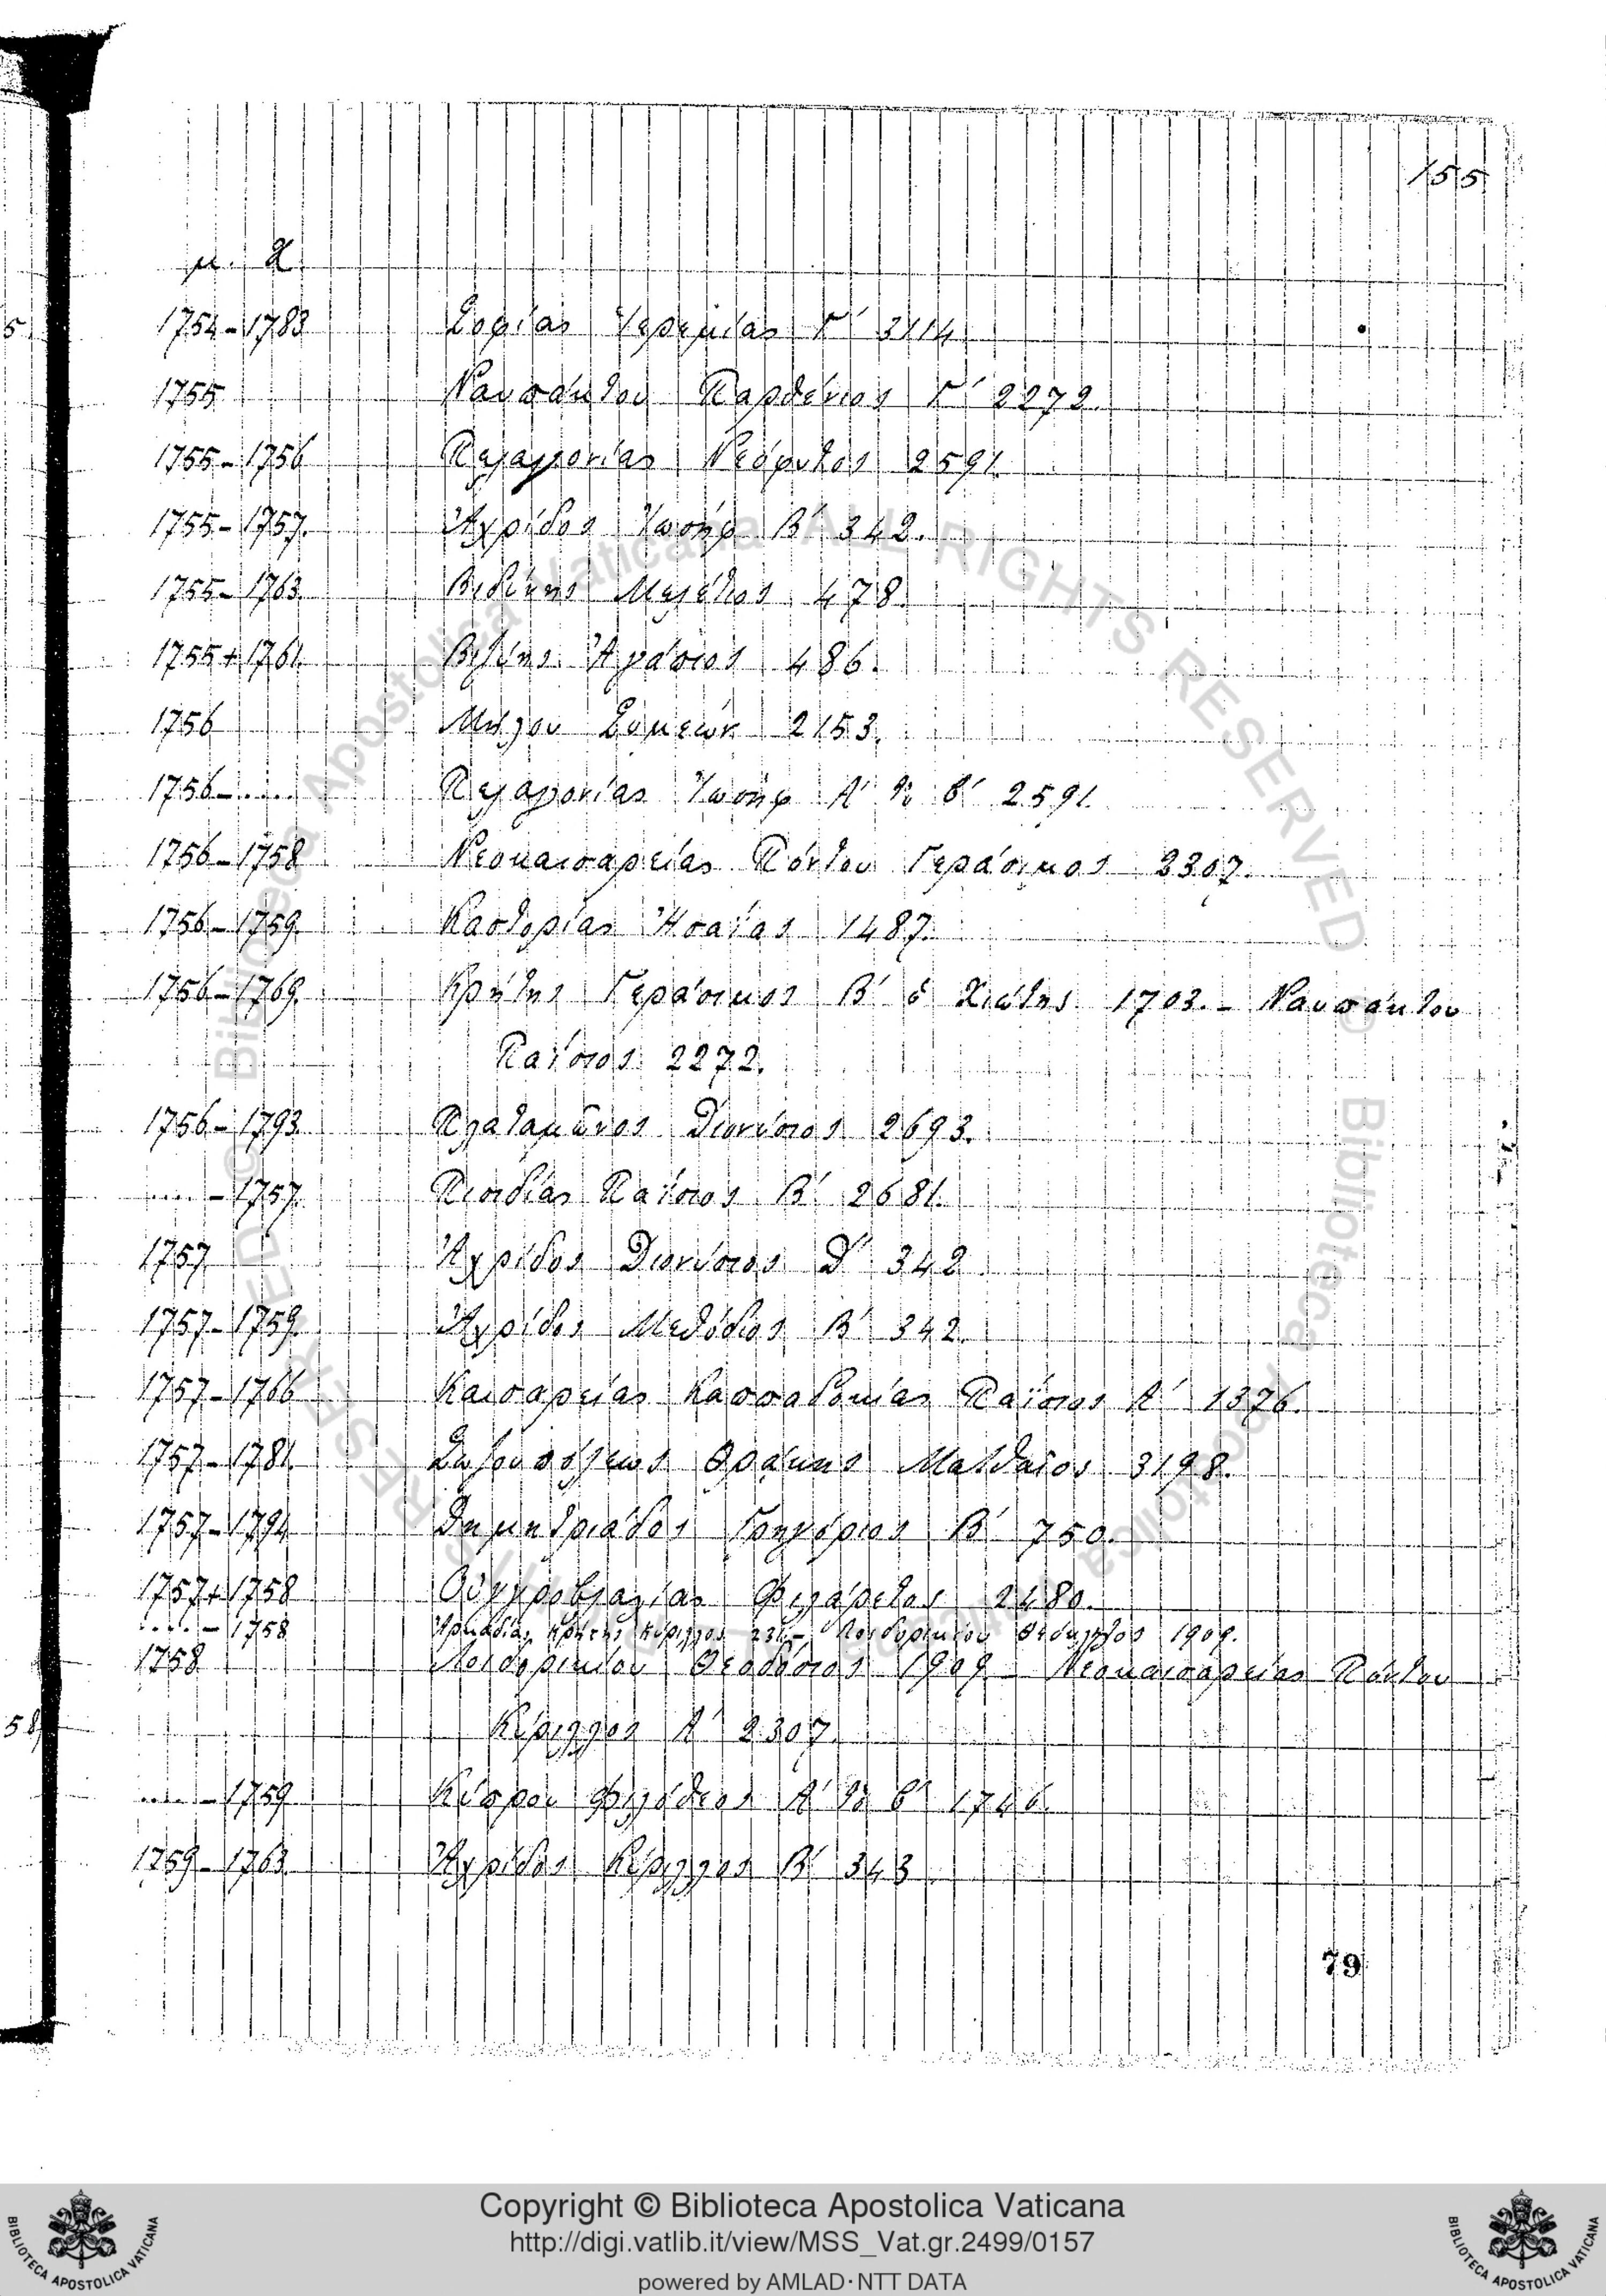 155
μ. Χ.
1754-1783 Σοφίας Ἱερεμίας Γ' 3114
1755 Ναυπάκτου Παρθένιος Γ' 2272.
1755-1756 Πελαγονίας Νεόφυτος 2591
1755-1757. Ἀχρίδος Ἰωσήφ Β' 342.
1755-1763. Βιδύνης Μελέτιος 478.
1755+1761. Βιζύης Ἀγάπιος 486.
1756 Μήλου Συμεών 2153.
1756-.... Πελαγονίας Ἰωσήφ Α' τὸ β' 2591.
1756-1758 Νεοκαισαρείας Πόντου Γεράσιμος 2307.
1756-1759. Καστορίας Ἡσαΐας 1487.
1756-1769. Κρήτης Γεράσιμος Β' ὁ Χιώτης 1703. - Ναυπάκτου
Παΐσιος 2272.
1756-1793 Πλαταμῶνος Διονύσιος 2693.
.....-1757. Πισιδίας Παΐσιος Β' 2681.
1757 Ἀχρίδος Διονύσιος Δ' 342
1757-1759. Ἀχρίδος Μεθόδιος Β' 342.
1757-1766 Καισαρείας Καππαδοκίας Παΐσιος Α' 1376.
1757-1781. Σωζουπόλεως Θρᾴκης Ματθαῖος 3198.
1757-1794 Δημητριάδος Γρηγόριος Β' 750.
1757+1758 Οὐγγροβλαχίας Φιλάρετος 2480.
.....-1758 Ἀρκαδίας Κρήτης Κύριλλος 231.- Λοιδορικίου 1909.
1758 Λοιδορικίου Θεοδόσιος 1909 - Νεοκαισαρείας Πόντου
58 Κύριλλος Α' 2307.
.....-1759 Κύπρου Φιλόθεος Α' τὸ β' 1746.
1759-1763 Ἀχρίδος Κύριλλος Β' 343
79
Copyright © Biblioteca Apostolica Vaticana
http://digi.vatlib.it/view/MSS_Vat.gr.2499/0157
powered by AMLAD·NTT DATA
BIBLIOTECA APOSTOLICA VATICANA
BIBLIOTECA APOSTOLICA VATICANA